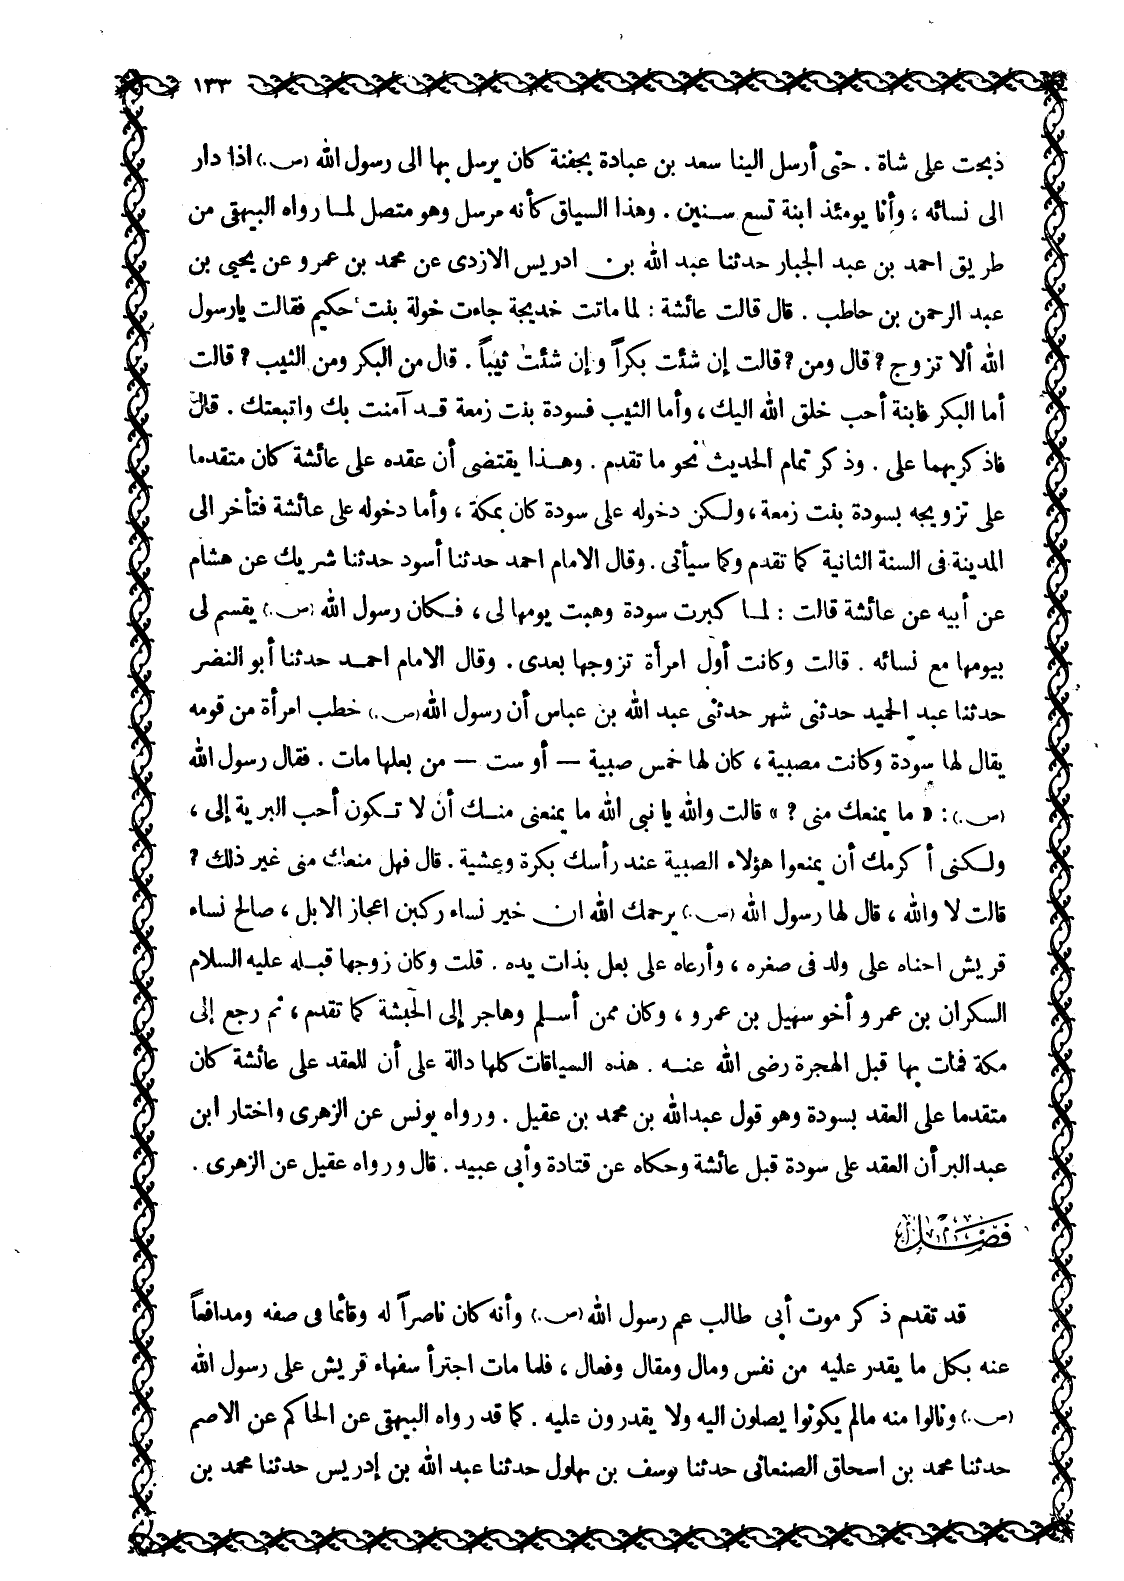 ١٣٣
ذبحت على شاة . حتى أرسل الينا سعد بن عبادة بجفنة كان يرسل بها الى رسول الله (ص) اذا دار
الى نسائه ، وأنا يومئذ ابنة تسع سنين . وهذا السياق كأنه مرسل وهو متصل لما رواه البيهقى من
طريق احمد بن عبد الجبار حدثنا عبد الله بن ادريس الازدى عن محمد بن عمرو عن يحيى بن
عبد الرحمن بن حاطب . قال قالت عائشة : لما ماتت خديجة جاءت خولة بنت حكيم فقالت يارسول
الله ألا تزوج ? قال ومن ? قالت إن شئت بكراً وإن شئت ثيباً . قال من البكر ومن الثيب ? قالت
أما البكر فابنة أحب خلق الله اليك ، وأما الثيب فسودة بنت زمعة قد آمنت بك واتبعتك . قال
فاذكريهما على . وذكر تمام الحديث نحو ما تقدم . وهذا يقتضى أن عقده على عائشة كان متقدما
على تزويجه بسودة بنت زمعة ، ولكن دخوله على سودة كان بمكة ، وأما دخوله على عائشة فتأخر الى
المدينة فى السنة الثانية كما تقدم وكما سيأتى . وقال الامام احمد حدثنا أسود حدثنا شريك عن هشام
عن أبيه عن عائشة قالت : لما كبرت سودة وهبت يومها لى ، فكان رسول الله (ص) يقسم لى
بيومها مع نسائه . قالت وكانت أول امرأة تزوجها بعدى . وقال الامام احمد حدثنا أبو النضر
حدثنا عبد الحميد حدثنى شهر حدثنى عبد الله بن عباس أن رسول الله (ص) خطب امرأة من قومه
يقال لها سودة وكانت مصبية ، كان لها خمس صبية — أو ست — من بعلها مات . فقال رسول الله
(ص) : « ما يمنعك منى ? » قالت والله يا نبى الله ما يمنعنى منك أن لا تكون أحب البرية إلى ،
ولكنى أكرمك أن يمنعوا هؤلاء الصبية عند رأسك بكرة وعشية . قال فهل منعك منى غير ذلك ?
قالت لا والله ، قال لها رسول الله (ص) يرحمك الله ان خير نساء ركبن اعجاز الابل ، صالح نساء
قريش احناه على ولد فى صغره ، وأرعاه على بعل بذات يده . قلت وكان زوجها قبله عليه السلام
السكران بن عمرو أخو سهيل بن عمرو ، وكان ممن أسلم وهاجر إلى الحبشة كما تقدم ، ثم رجع إلى
مكة فمات بها قبل الهجرة رضى الله عنه . هذه السياقات كلها دالة على أن للعقد على عائشة كان
متقدما على العقد بسودة وهو قول عبدالله بن محمد بن عقيل . ورواه يونس عن الزهرى واختار ابن
عبد البر أن العقد على سودة قبل عائشة وحكاه عن قتادة وأبى عبيد . قال ورواه عقيل عن الزهرى .
فصل
قد تقدم ذكر موت أبى طالب عم رسول الله (ص) وأنه كان ناصراً له وقائما فى صفه ومدافعاً
عنه بكل ما يقدر عليه من نفس ومال ومقال وفعال ، فلما مات اجترأ سفهاء قريش على رسول الله
(ص) ونالوا منه مالم يكونوا يصلون اليه ولا يقدرون عليه . كما قد رواه البيهقى عن الحاكم عن الاصم
حدثنا محمد بن اسحاق الصنعانى حدثنا يوسف بن بهلول حدثنا عبد الله بن إدريس حدثنا محمد بن